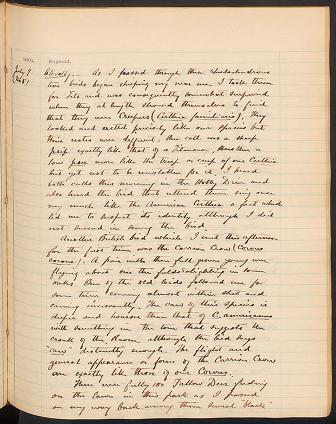 England.
July 9
closely. As I passed through these rhododendrons
two birds began chirping very near me. I took them
for Tits and was consequently somewhat surprised
when they at length showed themselves to find
that they were Creepers (Certhia familiaris). They
looked and acted precisely like our species but
their notes were different. One call was a sharp
exactly like that of a
low more like the of our Certhia
but yet not to be mistaken for it. I heard
both calls this morning in the Deer and
also heard the bird that uttered them sing
very much like the American Certhia a fact which
led me to suspect its identity although I did
not succeed in seeing the bird.
Another British bird which I met this afternoon
for the first time was the Carrion Crow (Corvus
corone). A pair with their full grown young were
flying about over the fields alighting in some
oaks. One of the old birds followed me for
some time coming almost within shot and
cawing incessantly. The caw of this species is
deeper and hoarser than that of C. americanus
with something in the tone that suggests the
croak of the Raven although the bird says
caw distinctly enough. The flight and
general appearance or form of the Carrion Crow
are exactly like those of our Corvus.
There were fully 100 Fallow Deer feeding
on the lawn in this park as I passed
on my way back, among them several "black"